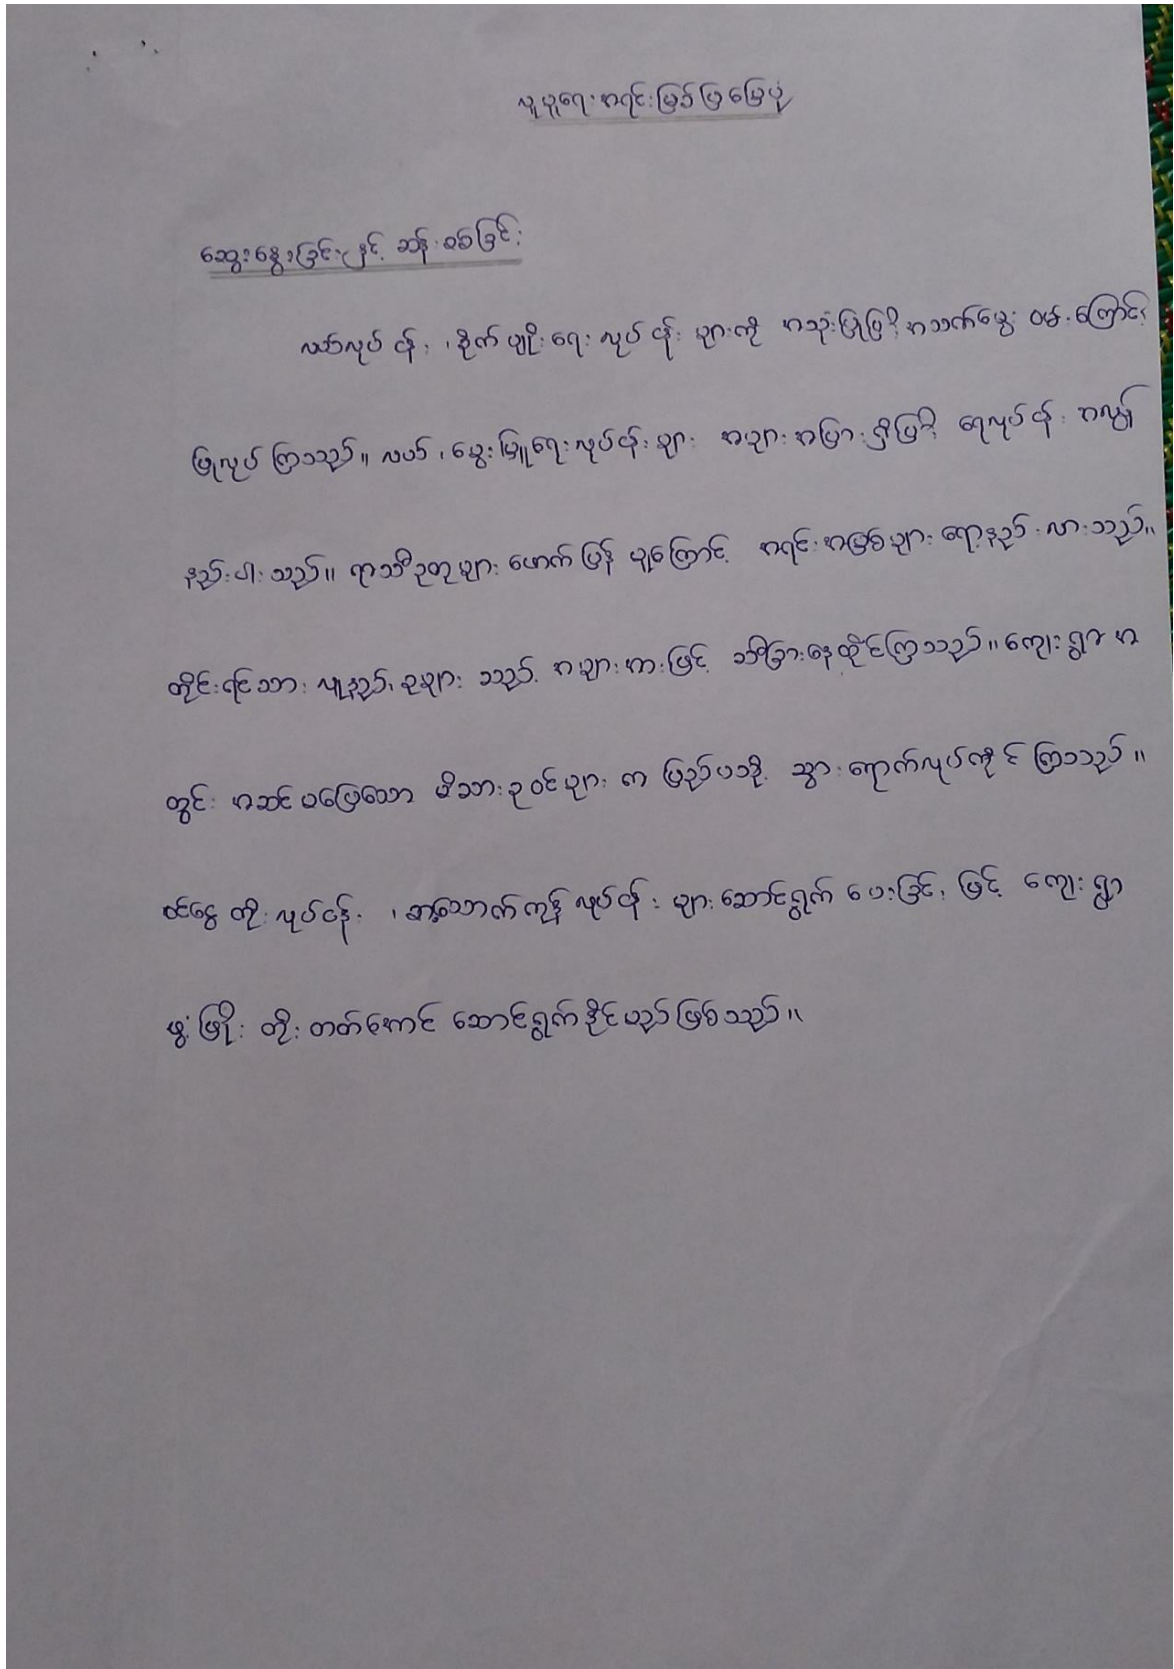 လူမှုရေးအရင်းမြစ်ပြမြေပုံ
ဆွေးနွေးခြင်းနှင့် ဆန်းစစ်ခြင်း
လယ်လုပ်ငန်း ၊ စိုက်ပျိုးရေးလုပ်ငန်းများကို အသုံးပြုပြီး အသက်မွေးဝမ်းကြောင်း
ပြုလုပ်ကြသည်။ လယ် ၊ မွေးမြူရေးလုပ်ငန်းများ အများအပြားရှိပြီး ရေလုပ်ငန်း အလွန်
နည်းပါးသည်။ ရာသီဥတုများ ဖောက်ပြန်မှုကြောင့် အရင်းအမြစ်များ လျော့နည်းလာသည်။
တိုင်းရင်းသား လူနည်းစုများသည် အများအားဖြင့် သီးခြားနေထိုင်ကြသည်။ ကျေးရွာအ
တွင်း အဆင်မပြေသော မိသားစုဝင်များက ပြည်ပသို့ သွားရောက်လုပ်ကိုင်ကြသည်။
ဝင်ငွေတိုးလုပ်ငန်း ၊ စားသောက်ကုန်လုပ်ငန်းများ ဆောင်ရွက်ပေးခြင်းဖြင့် ကျေးရွာ
ဖွံ့ဖြိုးတိုးတတ်အောင် ဆောင်ရွက်နိုင်မည်ဖြစ်သည်။